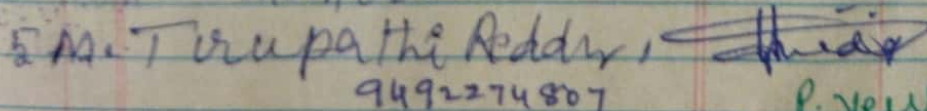 5 M. Tirupathi Reddy,
9492274807